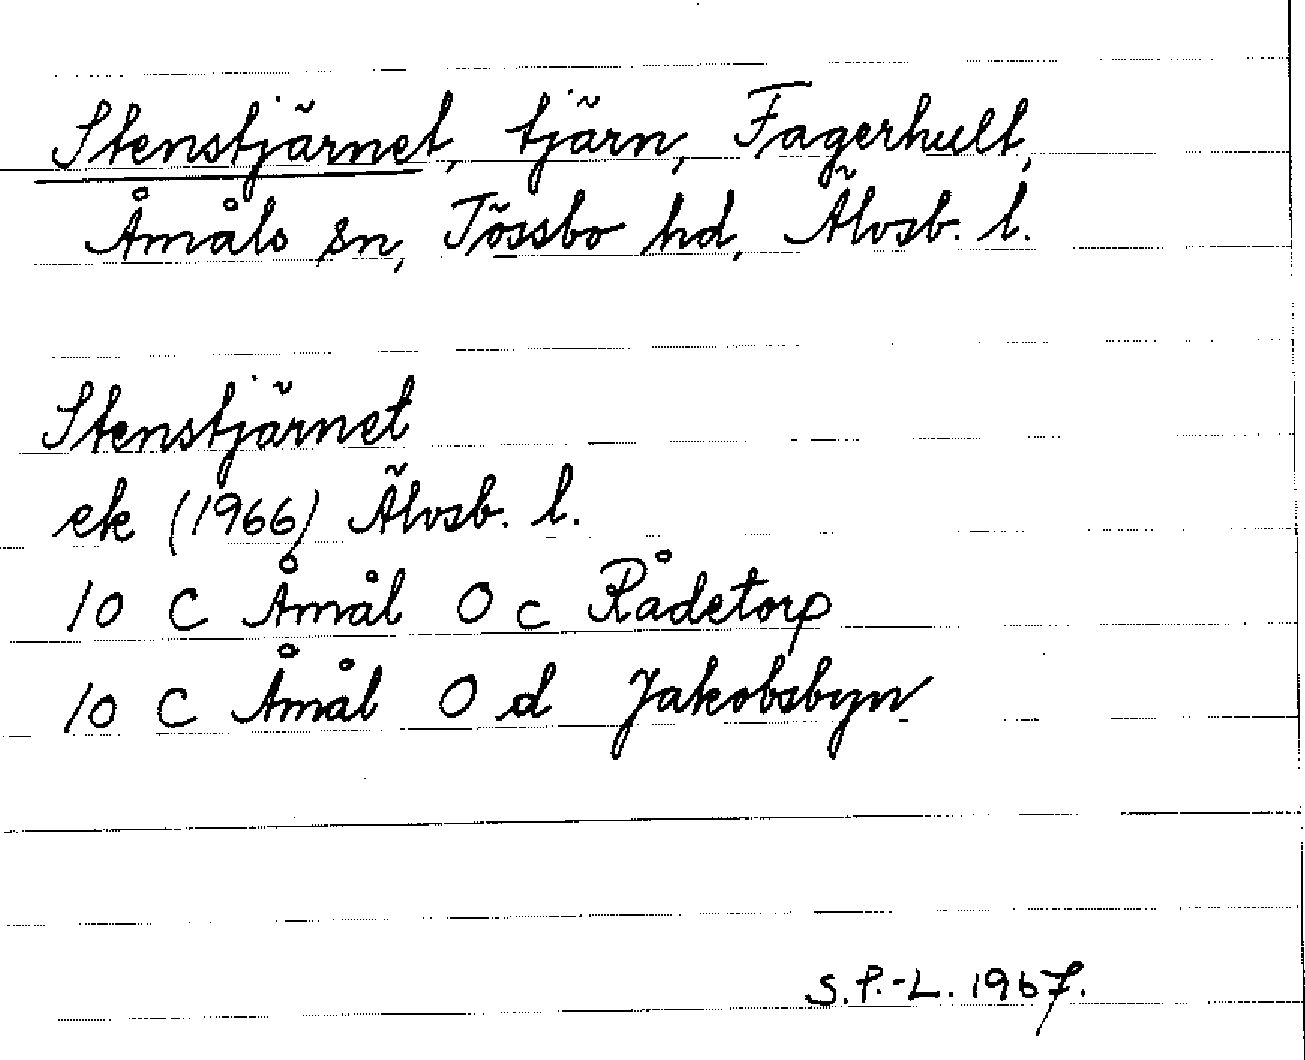 Stenstjärnet, tjärn, Fagerhult,
Åmåls sn, Tössbo hd, Älvsb. l.
Stenstjärnet
ek (1966) Älvsb. l.
10 C Åmål O c Rådetorp
10 C Åmål O d Jakobsbyn
S.P.-L. 1967.